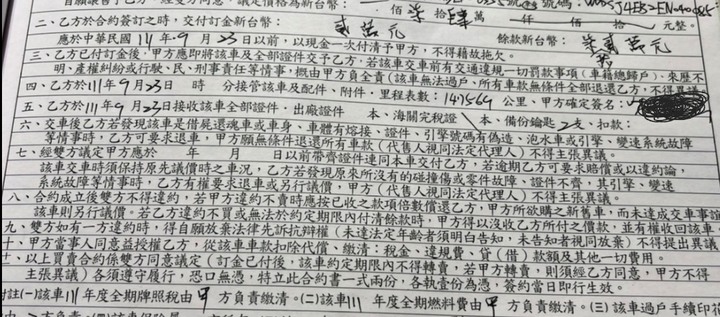 首願讓售予乙方，經雙方同意，議定價格為新台幣：
佰 柒 拾 肆 萬 仟 佰 拾 元整。
號碼：
二、乙方於合約簽訂之時，交付訂金新台幣： 貳萬元
應於中華民國 111 年 9 月 23 日以前，以現金一次付清予甲方，不得藉故拖欠。 餘款新台幣： 柒貳萬元
三、乙方已付訂金後，甲方應即將該車及全部證件交予乙方，若該車交車前有交通違規一切罰款事項（車籍總歸戶），來歷不
明、產權糾紛或行駛、民、刑事責任等情事，概由甲方負全責（該車無法過戶、所有車款無條件全部退還乙方，不得異議
四、乙方於 111 年 9 月 23 日 時 分接管該車及配件、附件，里程表數： 141564 公里，甲方確定簽名：
五、乙方於 111 年 9 月 23 日接收該車全部證件，出廠證件 本、海關完稅證 本、備份鑰匙 2 支、扣款：
六、交車後乙方若發現該車是借屍還魂車或車身、車體有熔接、證件、引擎號碼有偽造、泡水車或引擎、變速系統故障
等情事時，乙方可要求退車，甲方願無條件退還所有車款（代售人視同法定代理人）不得主張異議。
七、經雙方議定甲方應於 年 月 日以前帶齊證件連同本車交付乙方，若逾期乙方可要求賠償或以違約論，
該車交車時須保持原先議價時之車況，乙方若發現原來所沒有的碰撞傷或零件故障、證件不齊，其引擎、變速
系統故障等情事時，乙方有權要求退車或另行議價，甲方（代售人視同法定代理人）不得主張異議。
八、合約成立後雙方不得違約，若甲方違約不賣時應按已收之款項倍數償還乙方，甲方所欲購之新舊車，而未達成交車事
該車則另行議價。若乙方違約不買或無法於約定期限內付清餘款時，甲方得以沒收乙方所付之借款，並有權收回該車
九、雙方如有一方違約時，得自願放棄法律先訴抗辯權（未達法定年齡者須明白告知，未告知者視同放棄）不得提出異議
十、甲方當事人同意益授權乙方，從該車車款扣除代償、繳清：稅金、違規費、貸（借）款額及其他一切費用。
十一、以上買賣合約係雙方同意議定（訂金已付後，該車約定期限內不得轉賣，若甲方轉賣，則須經乙方同意，甲方不得
主張異議）各須遵守履行，恐口無憑，特立此合約書一式兩份，各執壹份為憑，簽約當日即行生效。
附註(一)該車 111 年度全期牌照稅由 甲 方負責繳清。(二)該車 111 年度全期燃料費由 甲 方負責繳清。(三)該車過戶手續